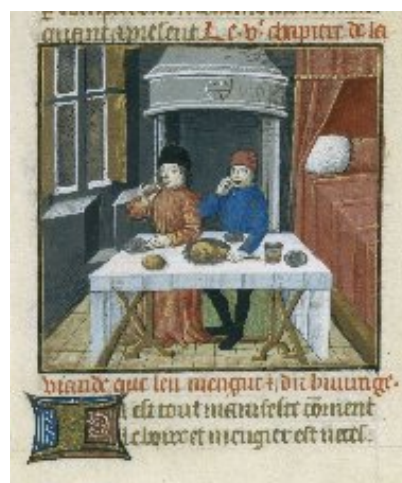 quant apresent Le .v. chapitre de la
viande que len mengut ⁊ du buurage.
Il est tout manifeste cōment
le boire et mengier est neces-